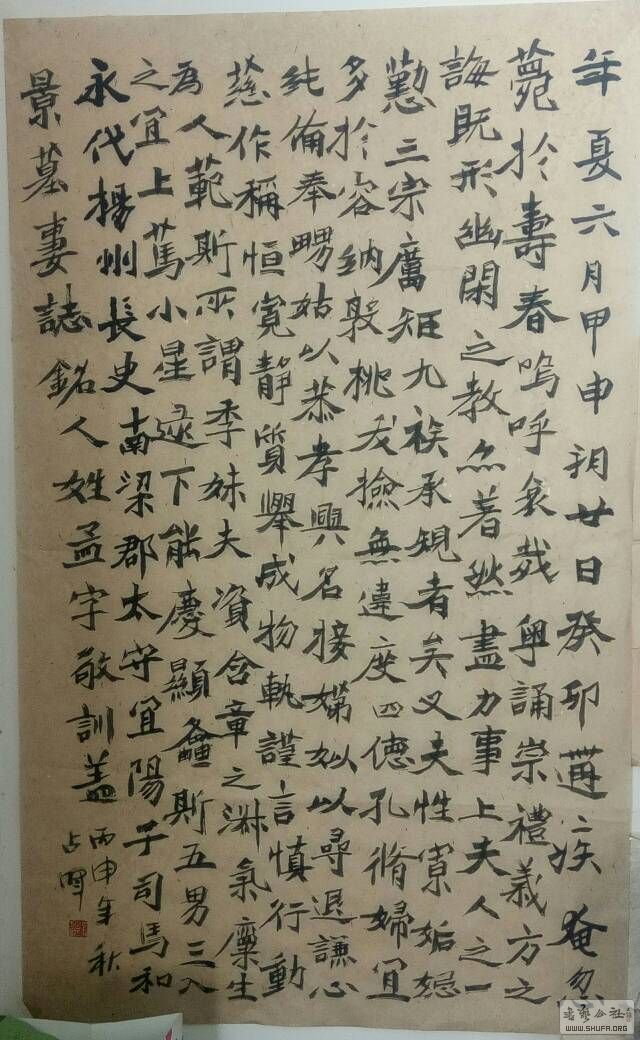 年夏六月甲申朔廿日癸卯遘疾奄忽
薨於壽春嗚呼哀哉粵誦崇禮義方之
誨既形幽閑之教亦著然盡力事上夫人之一
懃三宗厲矩九族承規者矣又夫性寡妬忌
多於容納敦桃夭撿無違度四德孔脩婦宜
純備奉舅姑以恭孝興名接娣姒以尋退謙心
慈作稱恒寬靜質舉成物軌謹言慎行動
為人範斯所謂季妹夫資含章之淋氣稟生
之宜上篤小星逯下能慶顯螽斯五男三入
永代揚州長史南梁郡太守宜陽子司馬和
景墓妻誌銘人姓孟字敬訓蓋
丙申年秋
占
WWW.SHUFA.ORG